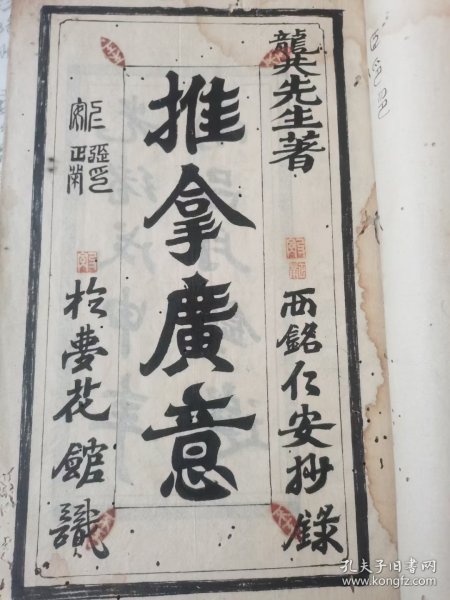 龍先生著
西銘仁安抄錄
推拿廣意
於夢花館識
孔夫子旧书网
www.kongfz.com